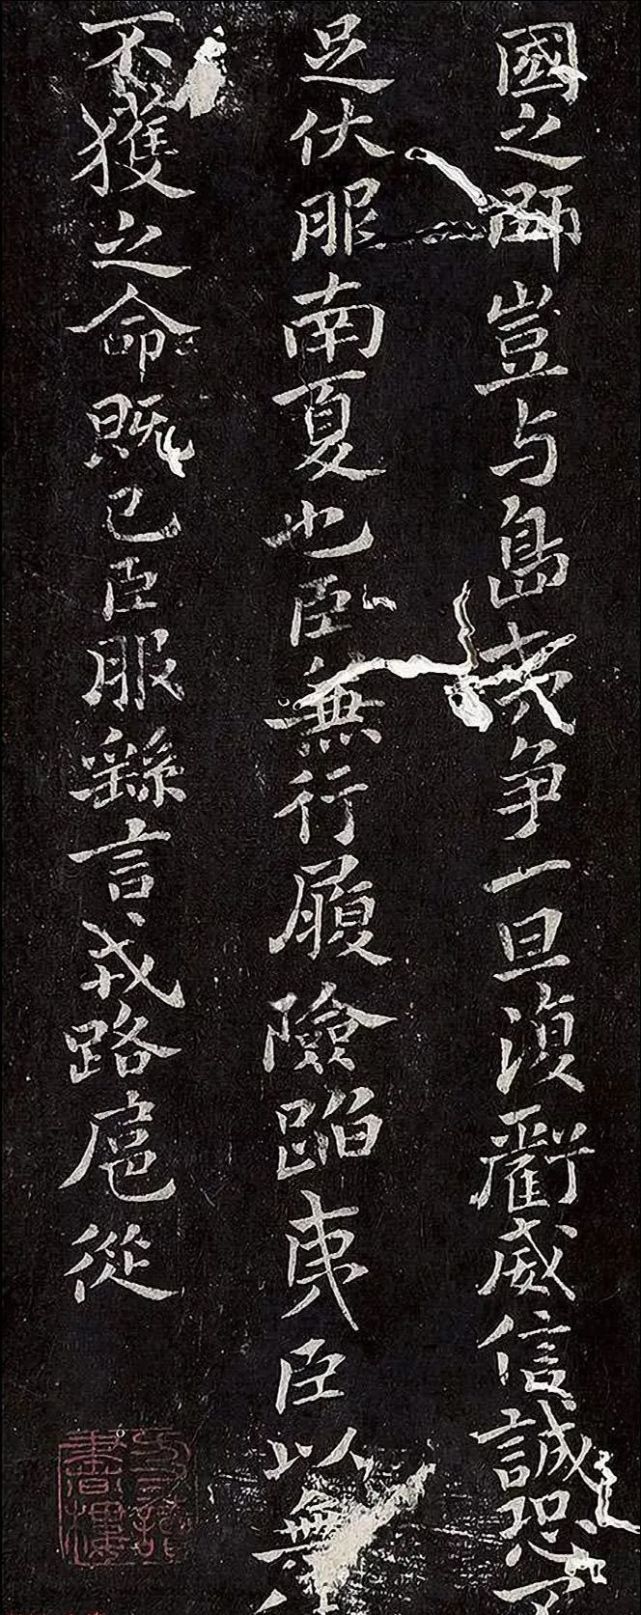 國之師豈与島夷争一旦虧威信誠恐不
足伏服南夏也臣無行履險蹈夷臣以無
不獲之命既已臣服繇言戎路扈從